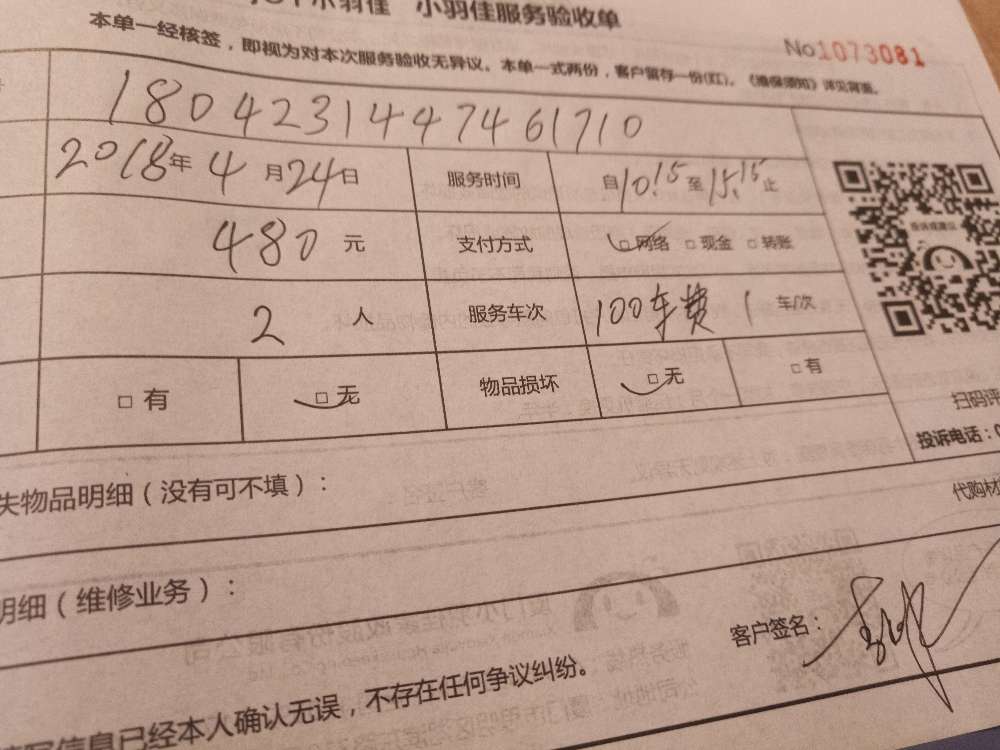 小羽佳 小羽佳服务验收单
No1073081
本单一经核签，即视为对本次服务验收无异议。本单一式两份，客户留存一份(红)。《维保须知》详见背面。
180423144747461710
2018年4月24日 服务时间 自10.15至15.15止
480元 支付方式 □网络 □现金 □转账
2人 服务车次 100车费 1车/次
□有 □无 物品损坏 □无 □有
扫码评
投诉电话：0
失物品明细（没有可不填）：
代购材
明细（维修业务）：
客户签名：
写信息已经本人确认无误，不存在任何争议纠纷。